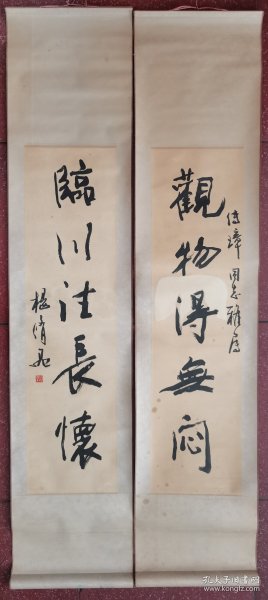 觀物得無悶
同志雅属
臨川注長懷
孔夫子旧书网